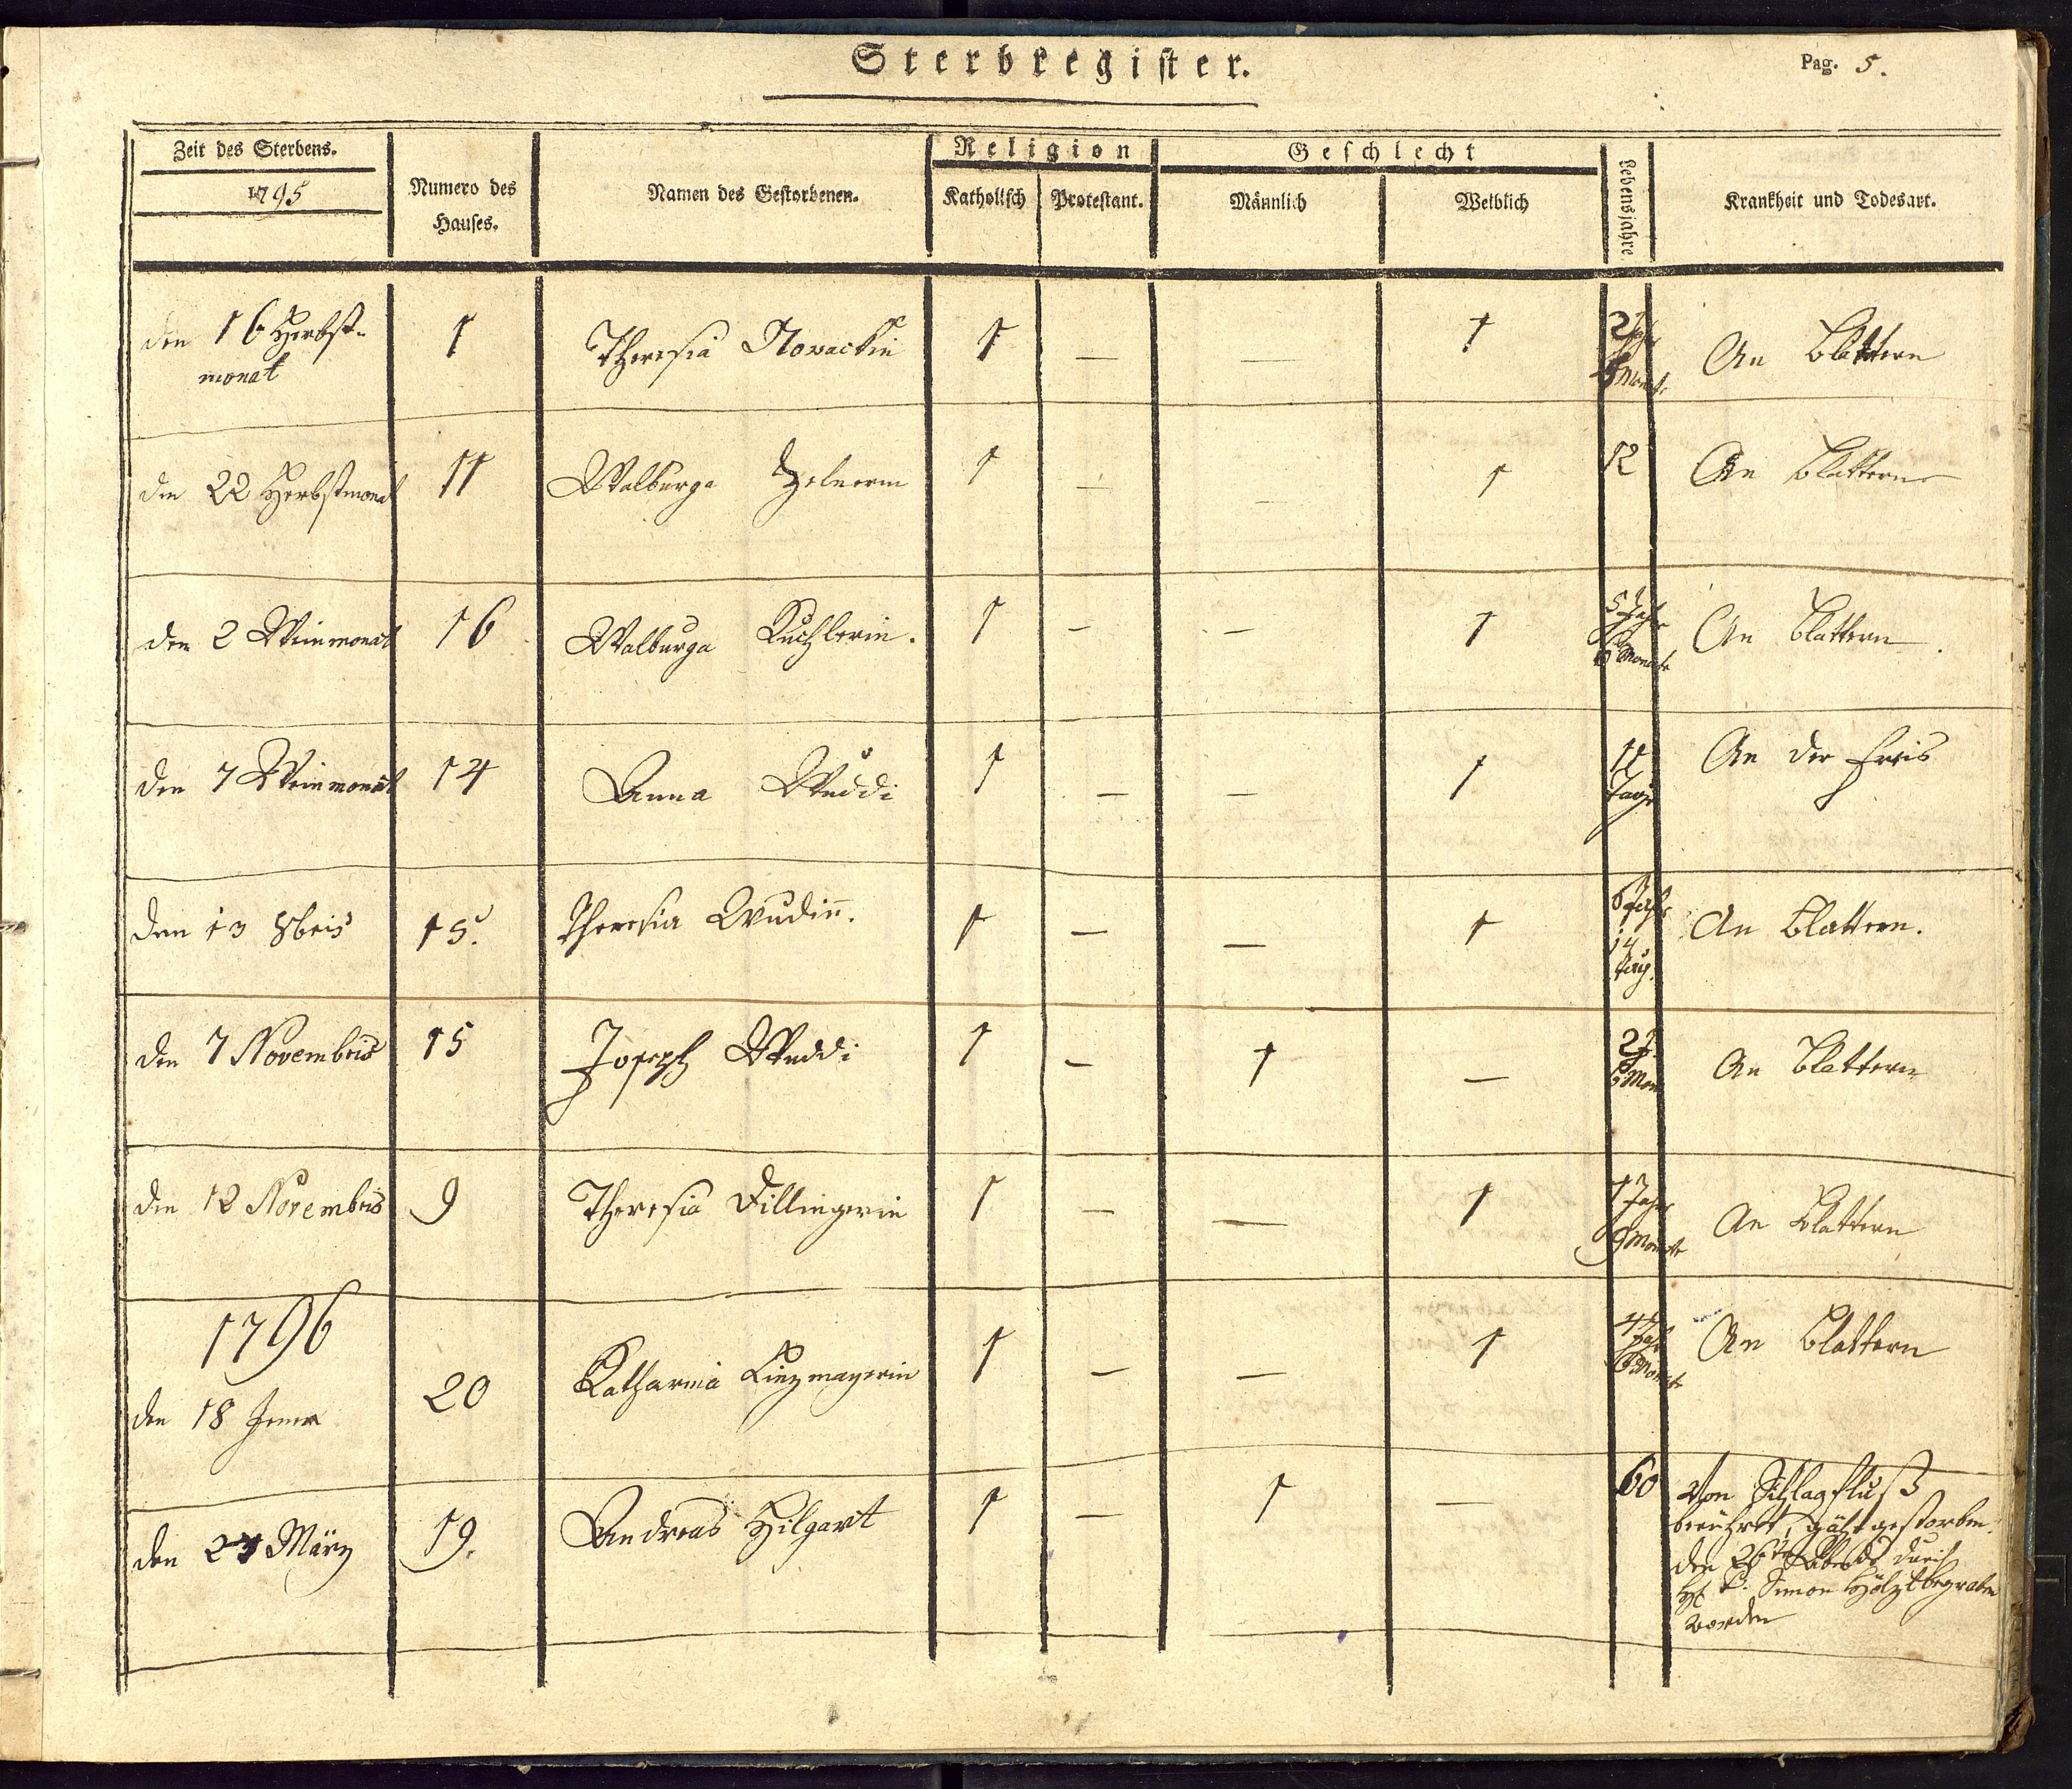 Sterbregister.
Pag. 5.
Zeit des Sterbens.
1795
Numero des
Hauses.
Namen des Gestorbenen.
Religion
Katholisch
Protestant.
Geschlecht
Männlich
Weiblich
Lebensjahre
Krankheit und Todesart.
den 16 Herbst-
monat
1
Theresia Novackin
1 — — 1
2 Jahr
Monate
An Blattern
den 22 Herbstmonat 11 Walburga 1 — — 1 12 An Blattern
den 2 Weinmonat 16 Walburga Kuchlerin. 1 — — 1
5 Jahr
Monate
An Blattern.
den 7 Weinmonat 14 Anna Wuddi 1 — — 1
11
Tage
An der Frais
den 13 8bris 15. Theresia Wudin. 1 — — 1
6 Jahr
14
Tag.
An Blattern.
den 7 Novembris 15 Joseph Wuddi 1 — 1 —
2 J.
6 Mon
An Blattern
den 12 Novembris 9 Theresia Dillingerin 1 — — 1
1 Jahr
9 Monate
An Blattern
1796
den 18 Jener
20 Katharina Linzmayerin 1 — — 1
4 Jahr
6 Monate
An Blattern
den 23 März 19. Andreas Hilgart 1 — 1 — 60
Von Schlagfluß
berührt, gäh gestorben.
den 26ten durch
P. Simon Hölzl begraben
worden